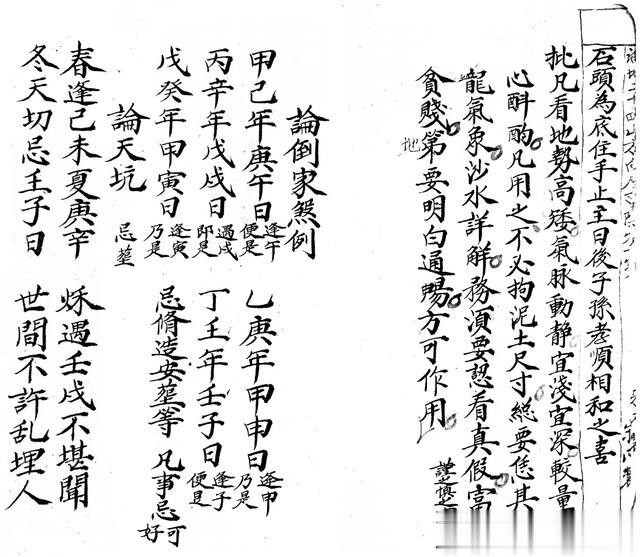 石頭為底住手止主日後子孫孝順相和之喜
批凡看地勢高矮氣脈動静宜淺宜深較量
心酙酌凡用之不必拘泥土尺寸緫要恁其
龍氣象沙水詳解務須要認看真假富
貧賤第要明白通賜方可作用
地
謹慎
論倒家煞例
甲己年庚午日 逢午便是 乙庚年甲申日 逢申乃是
丙辛年戊戌日 遇戌即是 丁壬年壬子日 逢子便是
戊癸年甲寅日 逢寅乃是 忌脩造安𦵏等凡事忌可好
論天坑 忌𦵏
春逢己未夏庚辛 秌遇壬戌不堪聞
冬天切忌壬子日 世間不許乱埋人